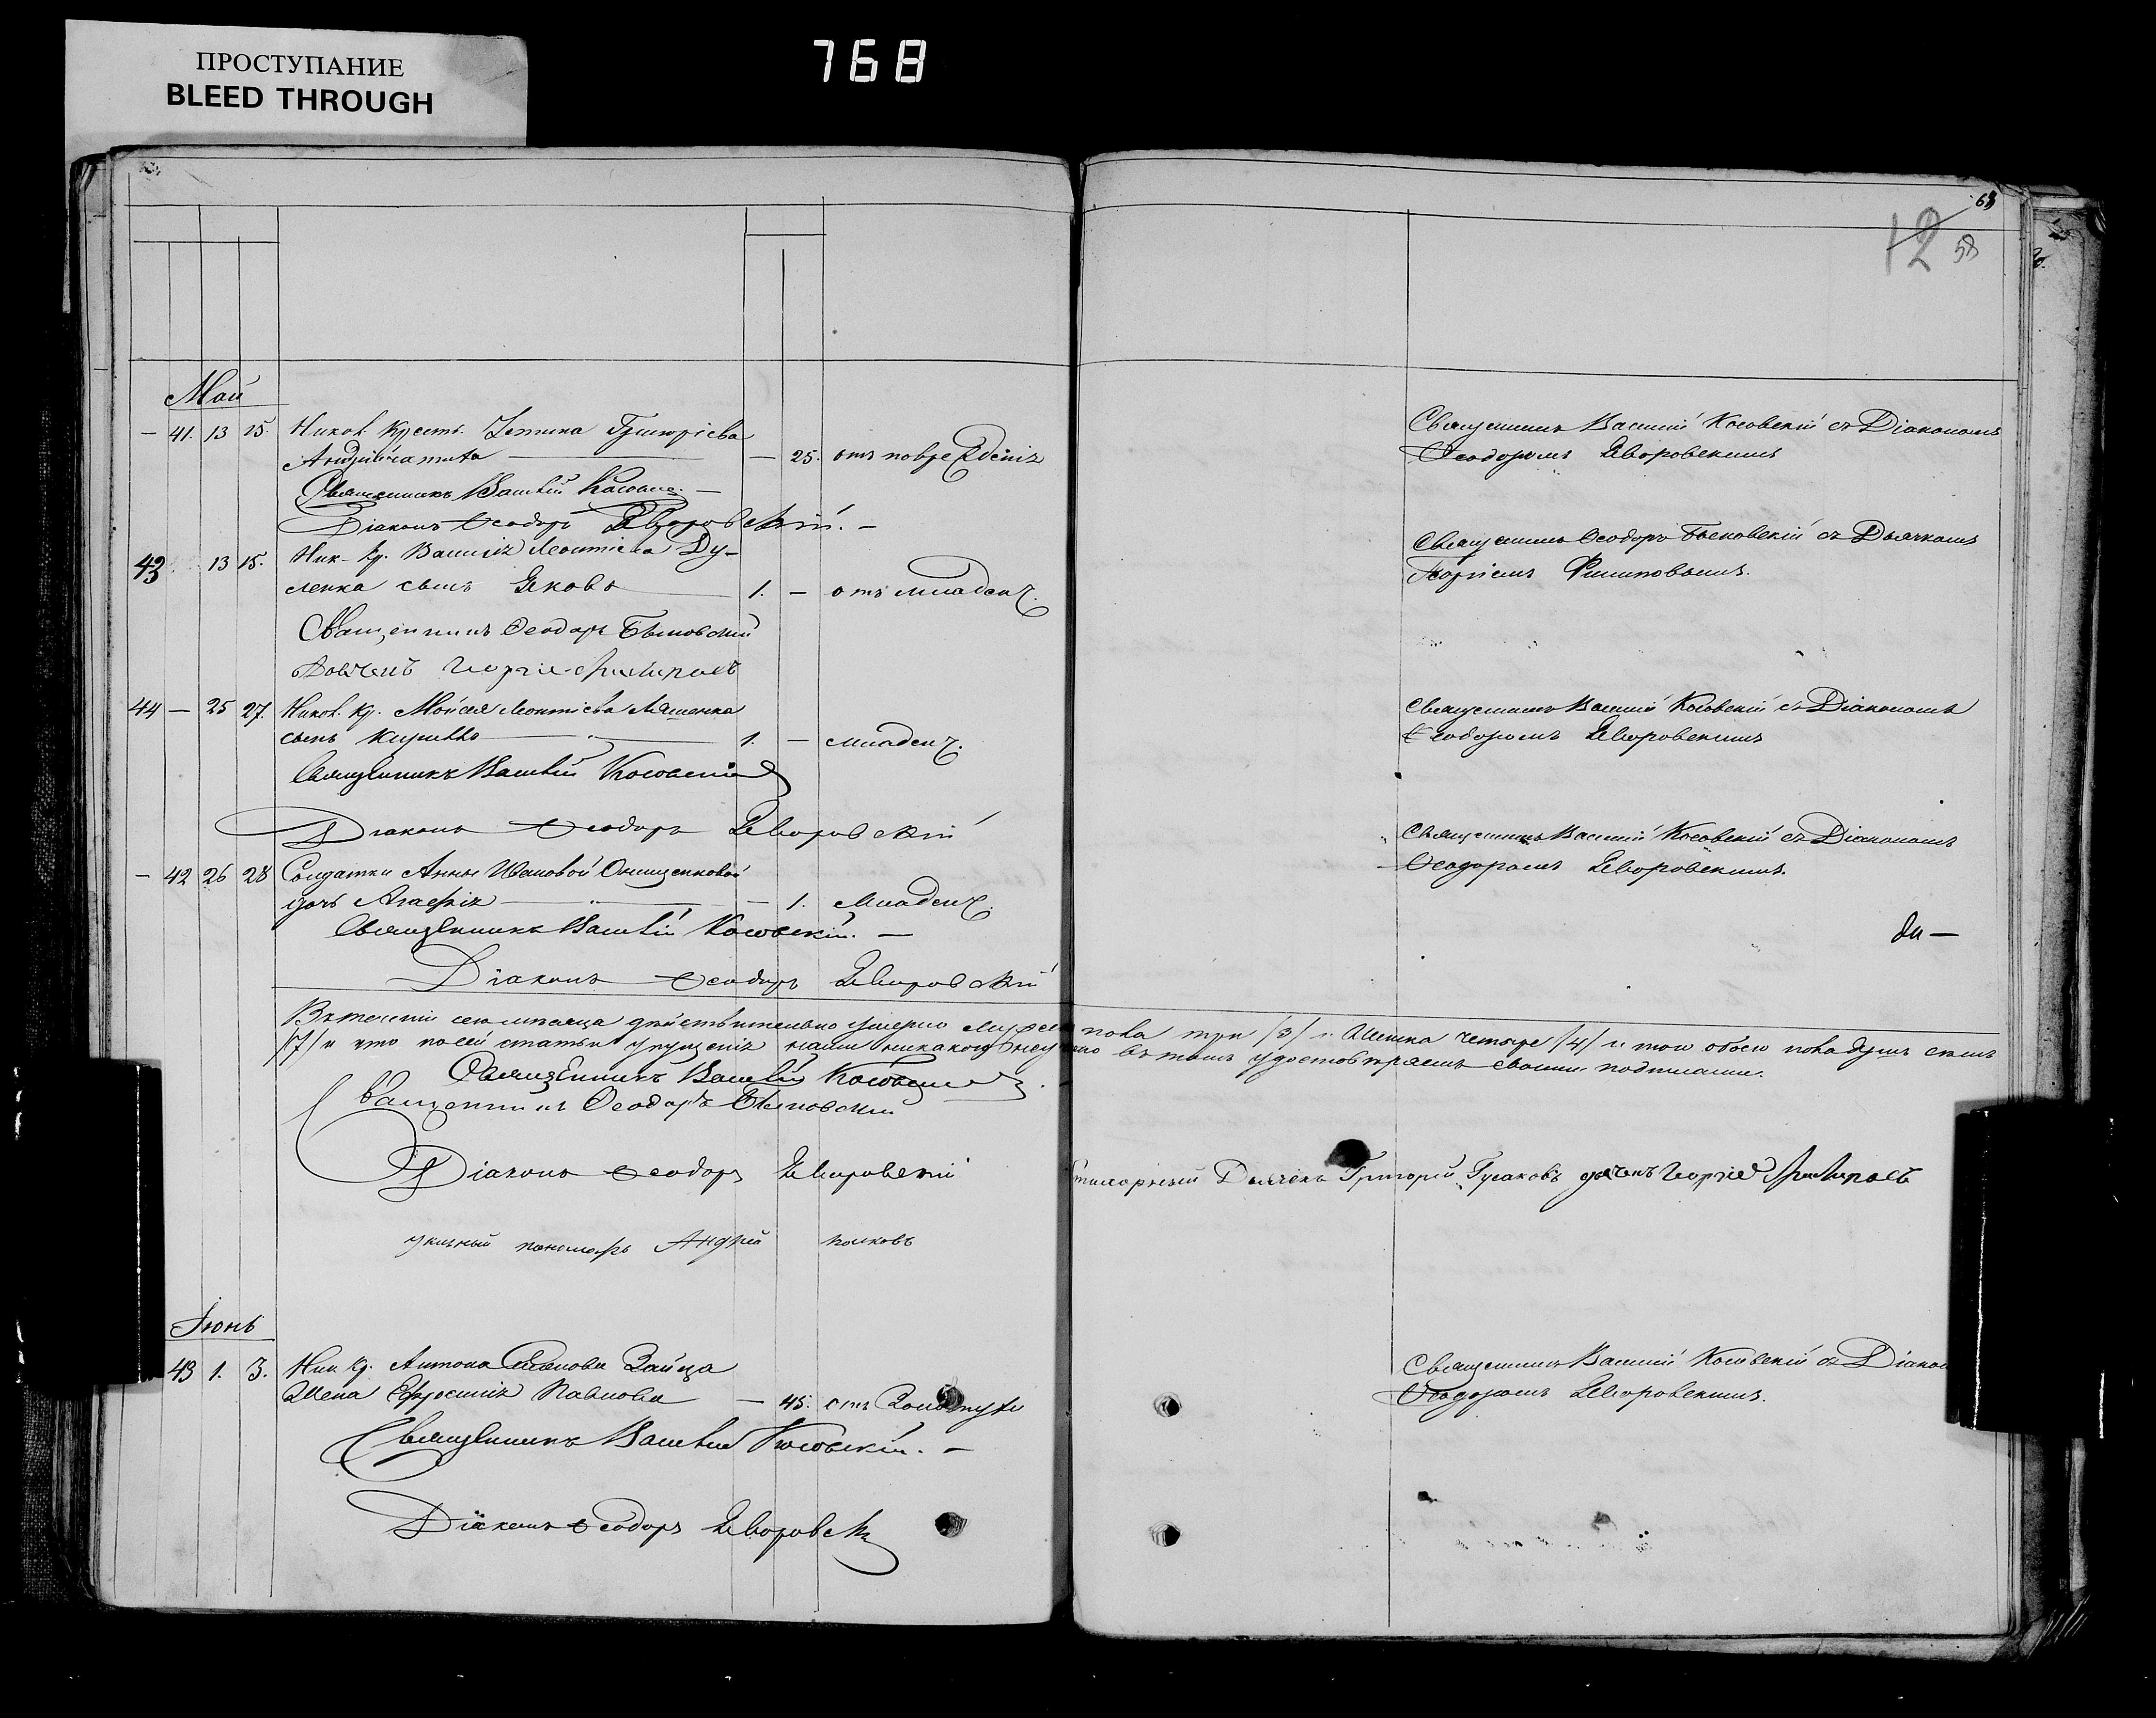 ПРОСТУПАНИЕ
BLEED THROUGH
768
63
12 58
Май
— 41. 13 15. Никол. Крест. Григорієва
— 25. отъ поврежденія
Священникъ Василій
Діаконъ Ѳеодоръ Яворовскій. —
Священникъ Василій Косовскій съ Діакономъ
Ѳеодоромъ Яворовскимъ
43 13 15. Ник. Кр. Василія Леонтіева Ду-
ленка сынъ Яковъ — 1. — отъ младенч.
Священникъ Ѳеодоръ Быковскій
Дьячекъ Георгій
Священникъ Ѳеодоръ Быковскій съ Дьячкомъ
Георгіемъ
44 — 25 27. Никол. Кр. Мойсея Леонтіева Ляшенка
сынъ Кириллъ — " — 1. — младенч.
Священникъ Василій Косовскій
Діаконъ Ѳеодоръ Яворовскій
Священникъ Василій Косовскій съ Діакономъ
Ѳеодоромъ Яворовскимъ
— 42 26 28 Солдатки Анны Ивановой Онищенковой
дочь Агафія — " — 1. младенч.
Священникъ Василій Косовскій. —
Діаконъ Ѳеодоръ Яворовскій
Священникъ Василій Косовскій съ Діакономъ
Ѳеодоромъ Яворовскимъ.
Въ теченіи сего мѣсяца дѣйствительно умерло мужеска пола три /3/ и женска четыре /4/ и того обоего пола душъ семь
/7/ и что по сей статьи упущенія нами никакого не въ томъ удостовѣряемъ своими подписами.
Священникъ Василій Косовскій
Священникъ Ѳеодоръ Быковскій
Діаконъ Ѳеодоръ Яворовскій
Дьячекъ Григорій Гусаковъ дьячекъ Георгій
пономарь Андрей
Іюнь
43 1. 3. Ник. Кр. Антона Зайца
жена Ефросинія Павлова — 45. отъ
Священникъ Василій Косовскій. —
Діаконъ Ѳеодоръ Яворовскій
Священникъ Василій Косовскій съ
Ѳеодоромъ Яворовскимъ.